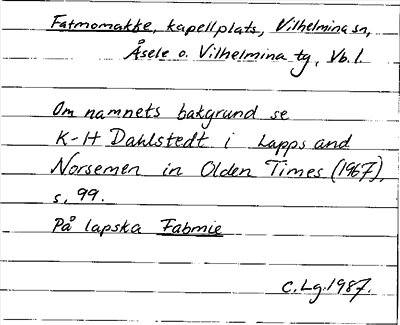 Fatmomakke, kapellplats, Vilhelmina sn,
Åsele o. Vilhelmina tg, Vb. l.
Om namnets bakgrund se
K-H Dahlstedt i Lapps and
Norsemen in Olden Times (1967),
s. 99.
På lapska Fabmie
C.Lg.1987.